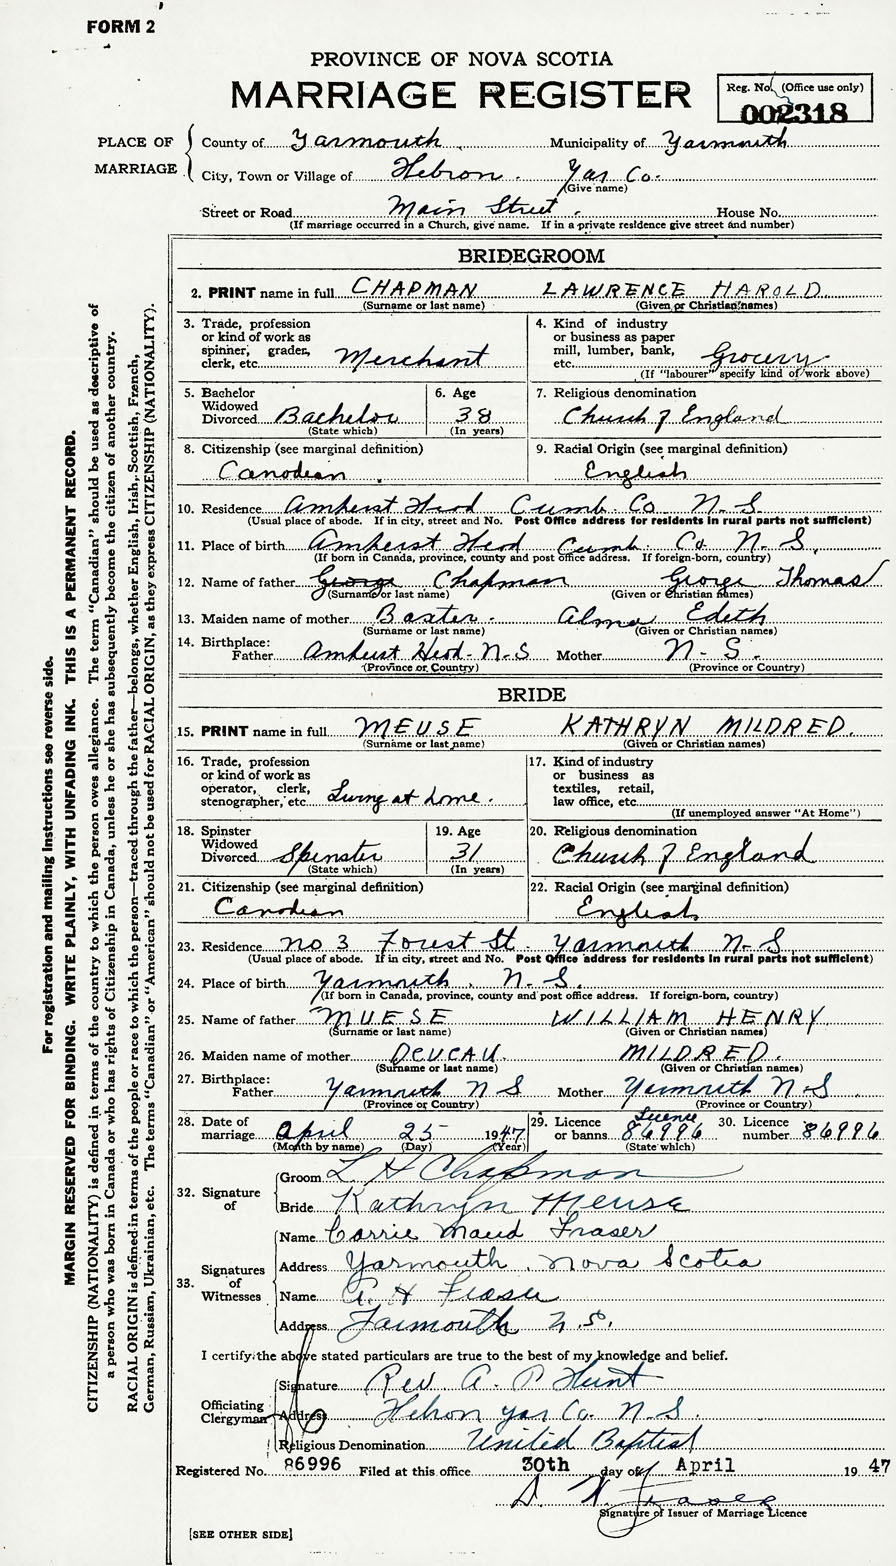 FORM 2
PROVINCE OF NOVA SCOTIA
MARRIAGE REGISTER
Reg. No. (Office use only)
002318
PLACE OF MARRIAGE
County of Yarmouth Municipality of Yarmouth
City, Town or Village of Hebron. Yar Co.
(Give name)
Street or Road Main Street. House No.
(If marriage occurred in a Church, give name. If in a private residence give street and number)
BRIDEGROOM
2. PRINT name in full CHAPMAN LAWRENCE HAROLD
(Surname or last name) (Given or Christian names)
3. Trade, profession or kind of work as spinner, grader, clerk, etc. Merchant
4. Kind of industry or business as paper mill, lumber, bank, etc. Grocery
(If "labourer" specify kind of work above)
5. Bachelor Widowed Divorced Bachelor
(State which)
6. Age 38
(In years)
7. Religious denomination
Church of England
8. Citizenship (see marginal definition)
Canadian.
9. Racial Origin (see marginal definition)
English
10. Residence Amherst Head Cumb. Co. N. S.
(Usual place of abode. If in city, street and No. Post Office address for residents in rural parts not sufficient)
11. Place of birth Amherst Head Cumb. Co. N. S.
(If born in Canada, province, county and post office address. If foreign-born, country)
12. Name of father George Chapman George Thomas
(Surname or last name) (Given or Christian names)
13. Maiden name of mother Baxter. Alma Edeth
(Surname or last name) (Given or Christian names)
14. Birthplace:
Father Amherst Head - N-S Mother N-S.
(Province or Country) (Province or Country)
BRIDE
15. PRINT name in full MEUSE KATHRYN MILDRED.
(Surname or last name) (Given or Christian names)
16. Trade, profession or kind of work as operator, clerk, stenographer, etc. Living at home.
17. Kind of industry or business as textiles, retail, law office, etc.
(If unemployed answer "At Home")
18. Spinster Widowed Divorced Spinster
(State which)
19. Age 31
(In years)
20. Religious denomination
Church of England
21. Citizenship (see marginal definition)
Canadian
22. Racial Origin (see marginal definition)
English
23. Residence No 3 Forest St. Yarmouth N-S.
(Usual place of abode. If in city, street and No. Post Office address for residents in rural parts not sufficient)
24. Place of birth Yarmouth. N-S.
(If born in Canada, province, county and post office address. If foreign-born, country)
25. Name of father MUESE WILLIAM HENRY
(Surname or last name) (Given or Christian names)
26. Maiden name of mother DEVEAU. MILDRED.
(Surname or last name) (Given or Christian names)
27. Birthplace:
Father Yarmouth N S Mother Yarmouth N-S.
(Province or Country) (Province or Country)
28. Date of marriage April 25 1947
(Month by name) (Day) (Year)
29. Licence or banns Licence 86996
(State which)
30. Licence number 86996
32. Signature of
Groom L H Chapman
Bride Kathryn Meuse
33. Signatures of Witnesses
Name Carrie Maud Fraser
Address Yarmouth, Nova Scotia
Name A. H Fraser
Address Yarmouth N.S.
I certify the above stated particulars are true to the best of my knowledge and belief.
Officiating Clergyman
Signature Rev A. P Hunt
Address Hebron Yar Co. N.S.
Religious Denomination United Baptist
Registered No. 86996 Filed at this office 30th day of April 1947
Signature of Issuer of Marriage Licence
[SEE OTHER SIDE]
For registration and mailing instructions see reverse side.
MARGIN RESERVED FOR BINDING. WRITE PLAINLY, WITH UNFADING INK. THIS IS A PERMANENT RECORD.
CITIZENSHIP (NATIONALITY) is defined in terms of the country to which the person owes allegiance. The term "Canadian" should be used as descriptive of
a person who was born in Canada or who has rights of Citizenship in Canada, unless he or she has subsequently become the citizen of another country.
RACIAL ORIGIN is defined in terms of the people or race to which the person—traced through the father—belongs, whether English, Irish, Scottish, French,
German, Russian, Ukrainian, etc. The terms "Canadian" or "American" should not be used for RACIAL ORIGIN, as they express CITIZENSHIP (NATIONALITY).